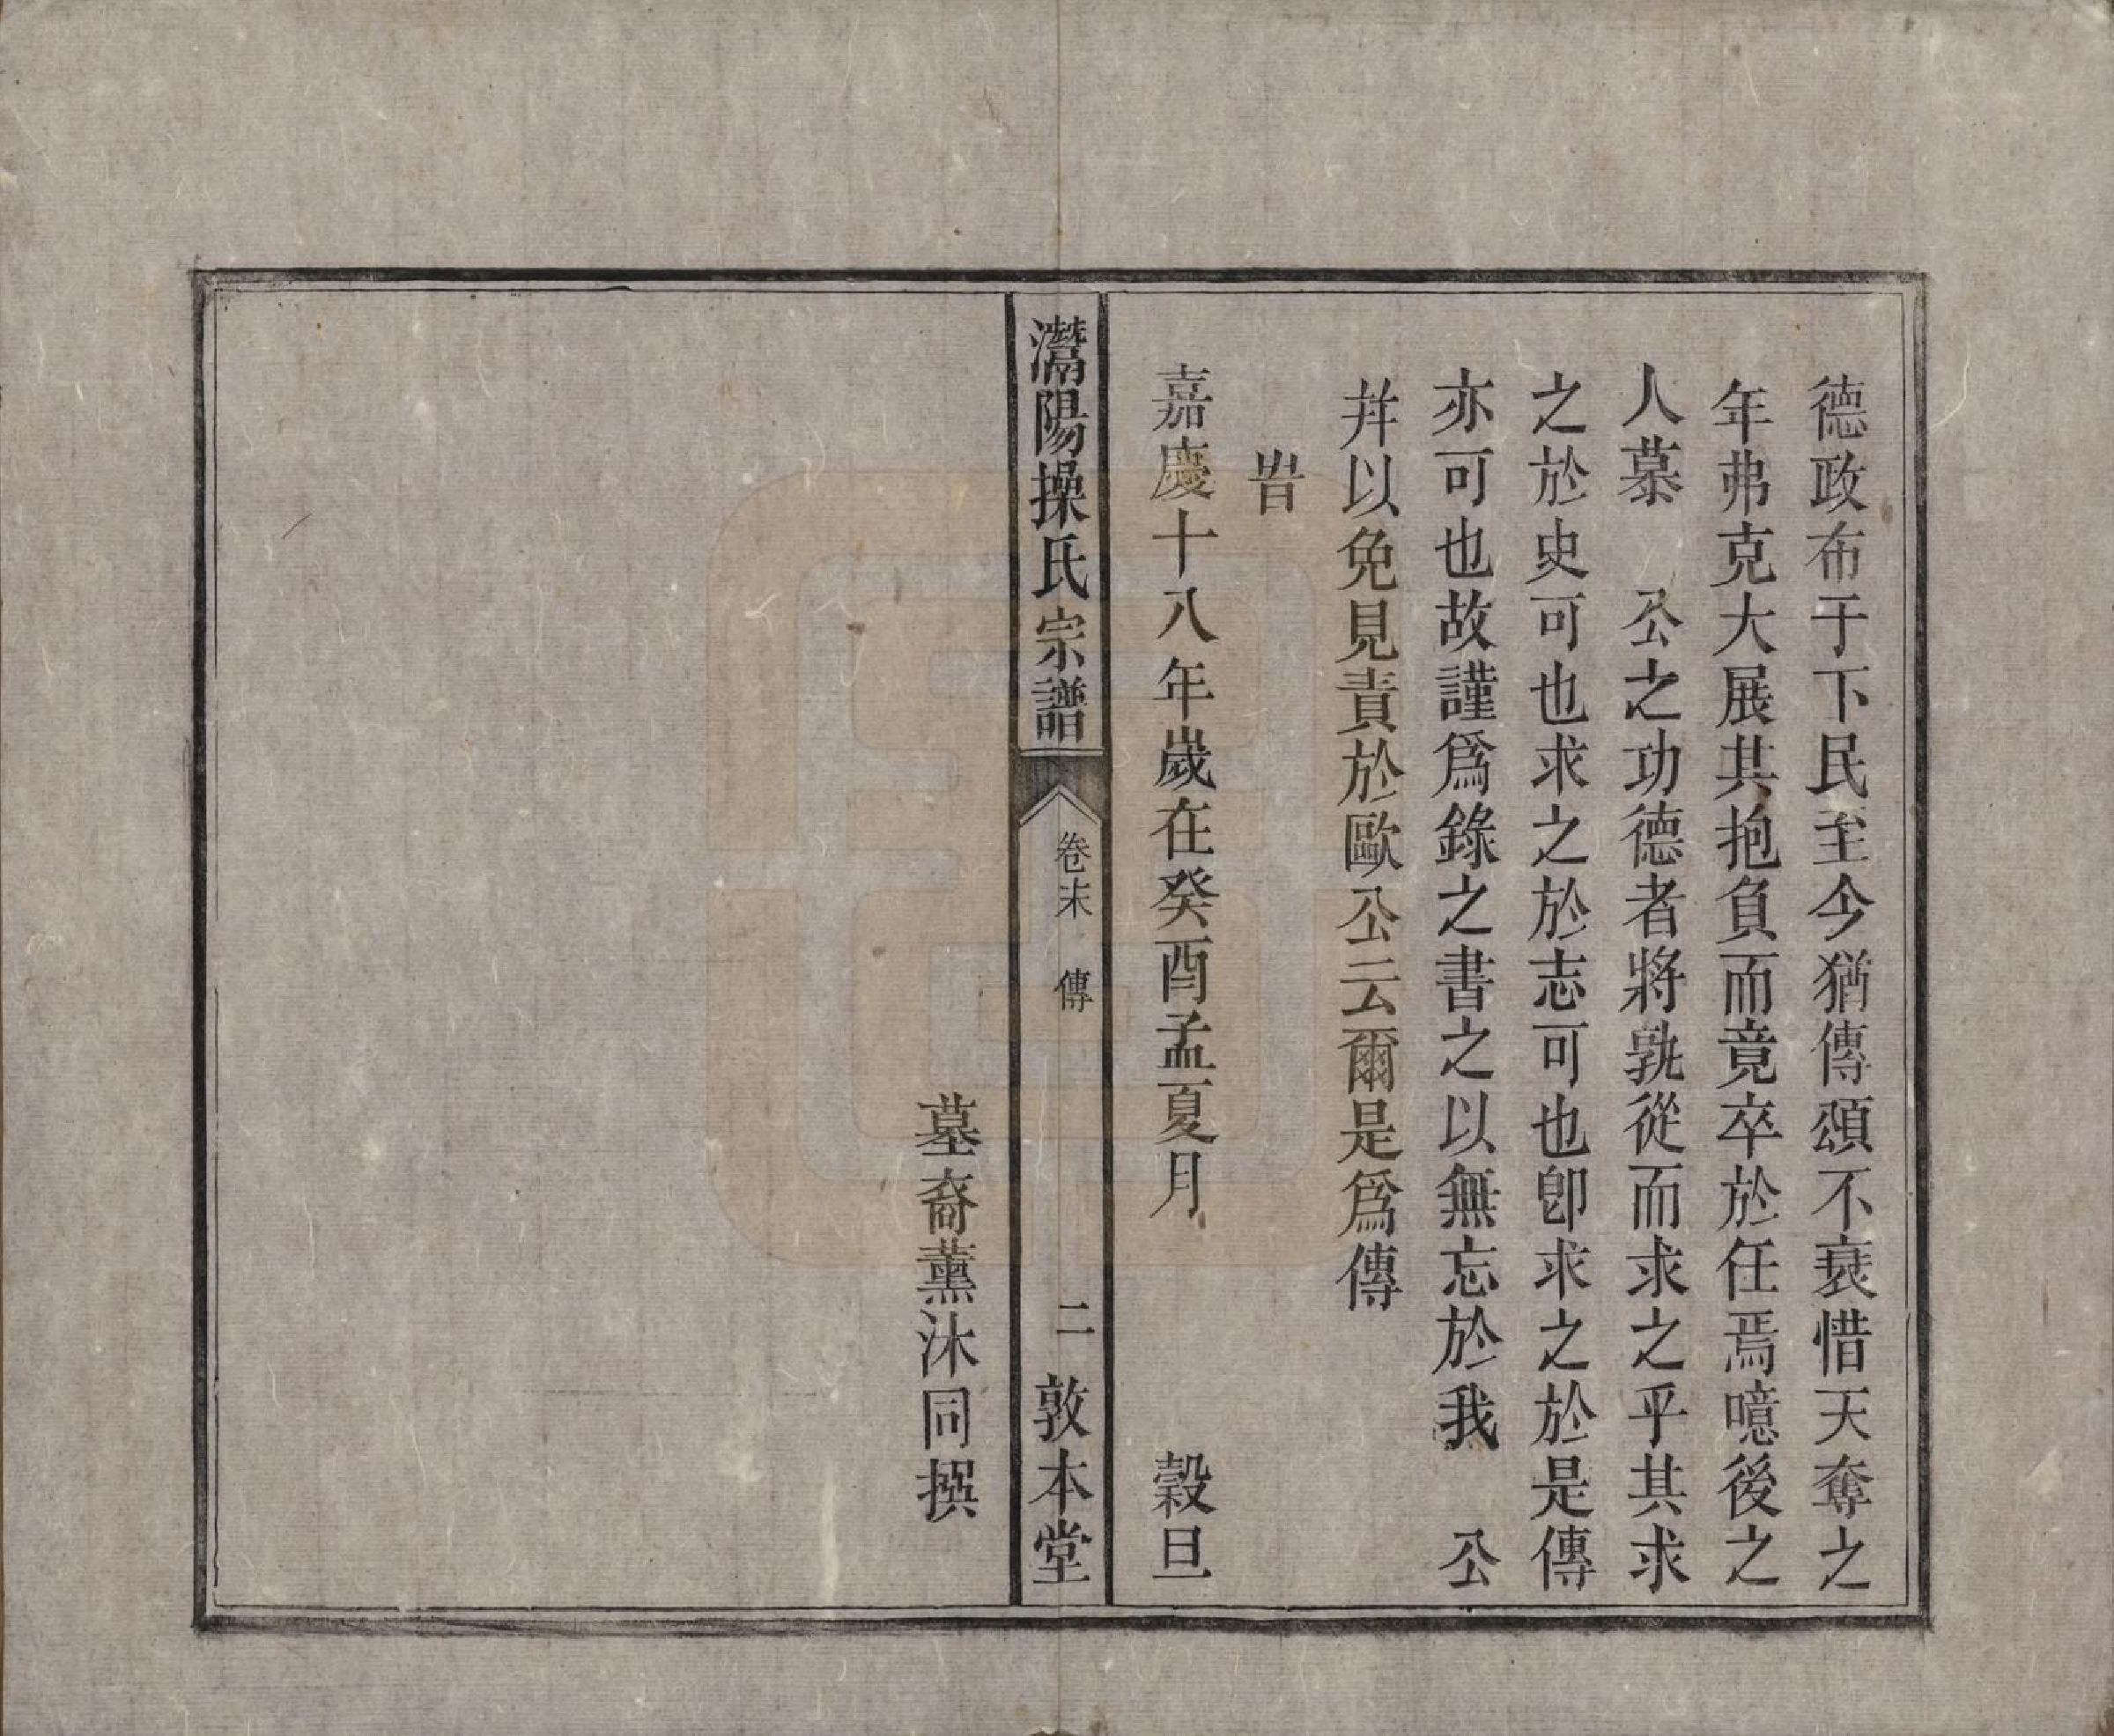 德政布于下民至今猶傳頌不衰惜天奪之
年弗克大展其抱負而竟卒於任焉噫後之
人慕　公之功德者將孰從而求之乎其求
之於史可也求之於志可也卽求之於是傳
亦可也故謹爲錄之書之以無忘於我　公
并以免見責於歐公云爾是爲傳
旹
嘉慶十八年歲在癸酉孟夏月　穀旦
灊陽操氏宗譜　卷末　傳　二　敦本堂
墓裔薰沐同撰